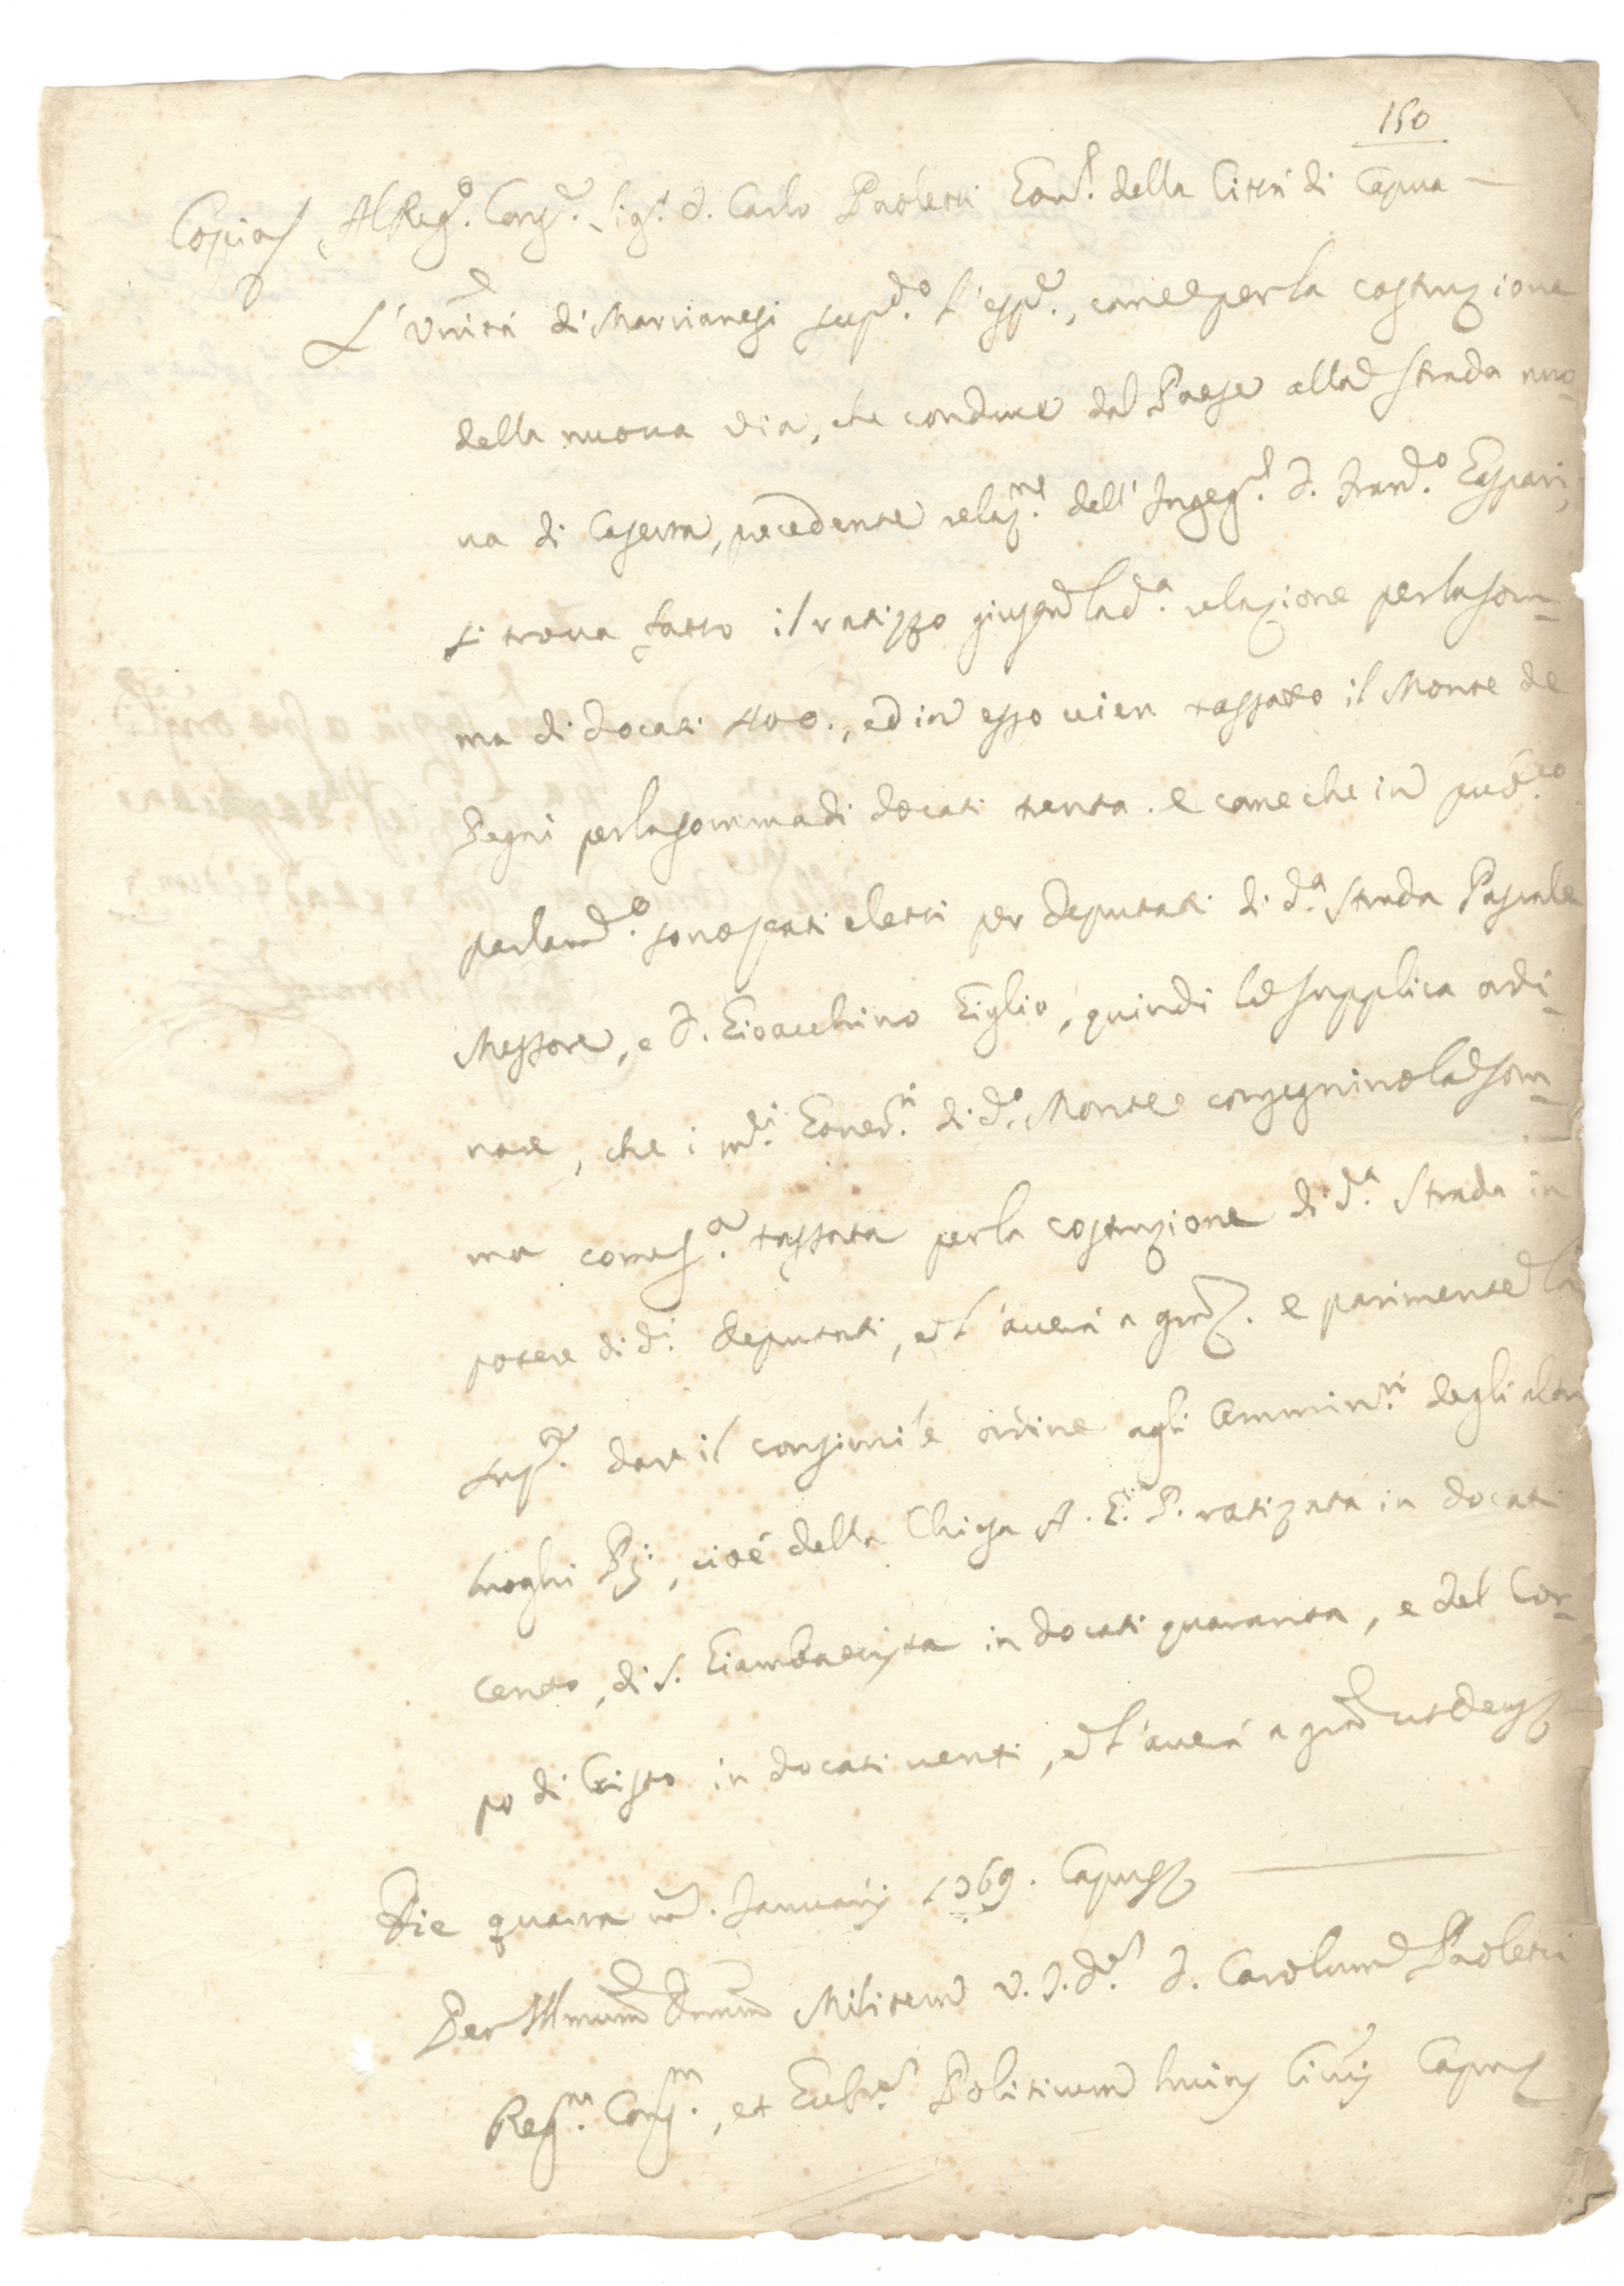 150
Copia / Al Reg.o Cons.re Sig.r D. Carlo Paoletti Gov.r della Città di Capua —
L'Uni.tà di Marcianesi supp.do l'espe., come per la costruzione
della nuova via, che conduce dal Paese alla Strada nuo-
va di Caserta, precedente relaz.ne dell'Ingeg.r D. Fran.co Gaspari,
si trova fatto il ratizzo giusta la d.a relazione per la som-
ma di docati 400., ed in esso vien tassato il Monte de
Pegni per la somma di docati trenta. e come che in pub.co
parlam.to sono stati eletti per Deputati di d.a Strada Pasquale
Messore, e D. Gioacchino Giglio, quindi la supplica ordi-
nare, che i m.ci Gover.ri di d.o Monte consegnino la som-
ma come s.a tassata per la costruzione di d.a Strada in
potere di d.i Deputati, e l'averà a graz. e parimente la
sup.ca dare il consimile ordine agli Ammin.ri degli altri
luoghi Pij, cioè della Chiesa A. G. P. ratizata in docati
cento, di S. Giambattista in docati quaranta, e del Cor-
po di Cristo in docati venti, e l'averà a gra. ut Deus
Die quarta m. Januarij 1769. Capuæ
Per Ill.mum Dnum Militem U. J. D.r D. Carolum Paoletti
Reg.m Cons.m, et Gub.re Politicum hujus Civ.is Capuæ